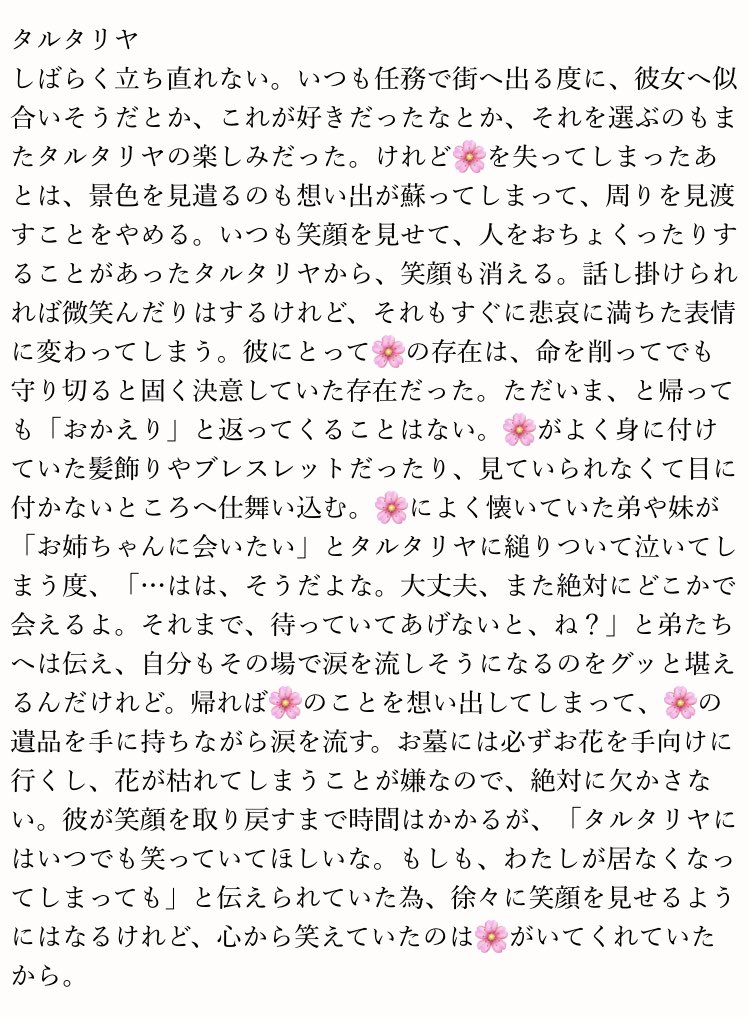 タルタリヤ
しばらく立ち直れない。いつも任務で街へ出る度に、彼女へ似
合いそうだとか、これが好きだったなとか、それを選ぶのもま
たタルタリヤの楽しみだった。けれど🌸を失ってしまったあ
とは、景色を見遣るのも想い出が蘇ってしまって、周りを見渡
すことをやめる。いつも笑顔を見せて、人をおちょくったりす
ることがあったタルタリヤから、笑顔も消える。話し掛けられ
れば微笑んだりはするけれど、それもすぐに悲哀に満ちた表情
に変わってしまう。彼にとって🌸の存在は、命を削ってでも
守り切ると固く決意していた存在だった。ただいま、と帰って
も「おかえり」と返ってくることはない。🌸がよく身に付け
ていた髪飾りやブレスレットだったり、見ていられなくて目に
付かないところへ仕舞い込む。🌸によく懐いていた弟や妹が
「お姉ちゃんに会いたい」とタルタリヤに縋りついて泣いてし
まう度、「…はは、そうだよな。大丈夫、また絶対にどこかで
会えるよ。それまで、待っていてあげないと、ね？」と弟たち
へは伝え、自分もその場で涙を流しそうになるのをグッと堪え
るんだけれど。帰れば🌸のことを想い出してしまって、🌸の
遺品を手に持ちながら涙を流す。お墓には必ずお花を手向けに
行くし、花が枯れてしまうことが嫌なので、絶対に欠かさな
い。彼が笑顔を取り戻すまで時間はかかるが、「タルタリヤに
はいつでも笑っていてほしいな。もしも、わたしが居なくなっ
てしまっても」と伝えられていた為、徐々に笑顔を見せるよう
にはなるけれど、心から笑えていたのは🌸がいてくれていた
から。